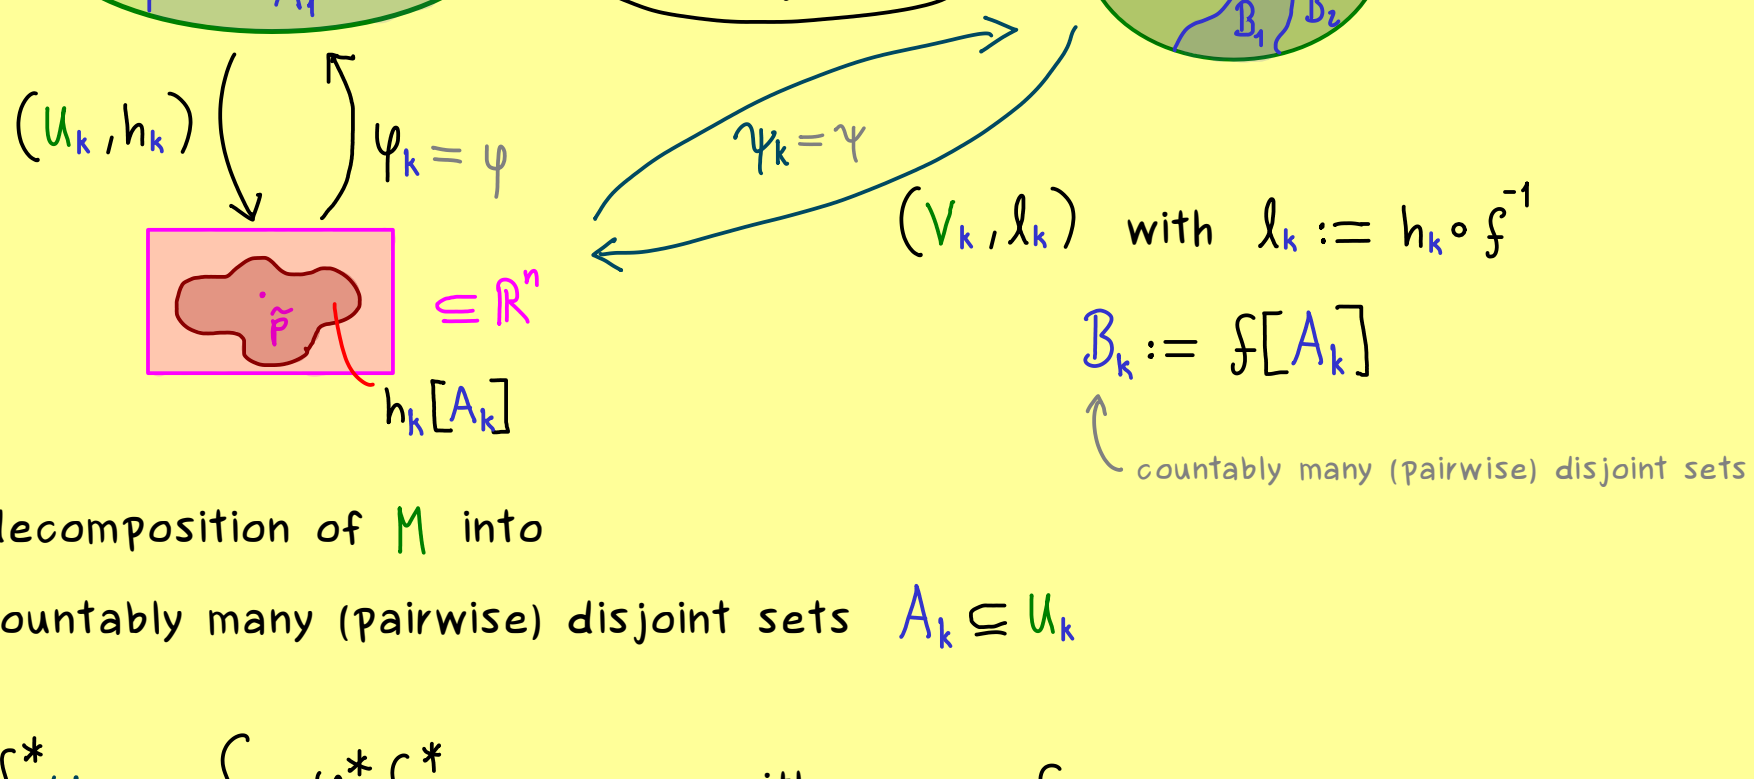 A₁
B₁ B₂
(Uₖ, hₖ)
φₖ = φ
ψₖ = ψ
(Vₖ, lₖ) with lₖ := hₖ ∘ f⁻¹
p̃
⊆ ℝⁿ
Bₖ := f[Aₖ]
hₖ[Aₖ]
countably many (pairwise) disjoint sets
decomposition of M into
ountably many (pairwise) disjoint sets Aₖ ⊆ Uₖ